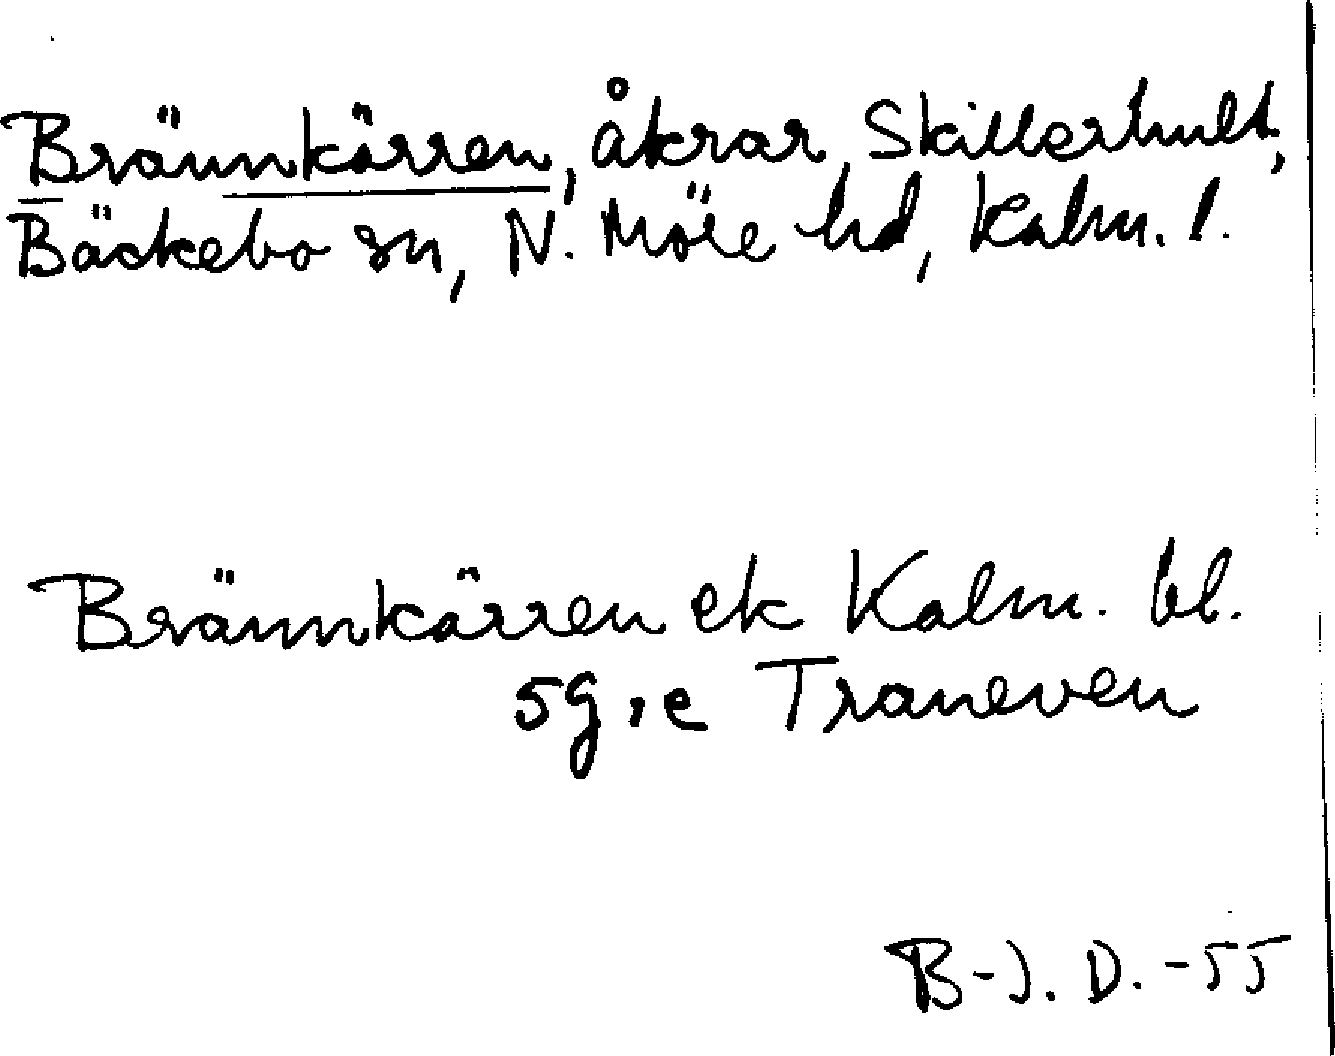 Brännkärren, åkrar, Skillerhult,
Bäckebo sn, N. Möre hd, Kalm. l.
Brännkärren ek Kalm. bl.
5g, e Traneven
B-J. D. -55